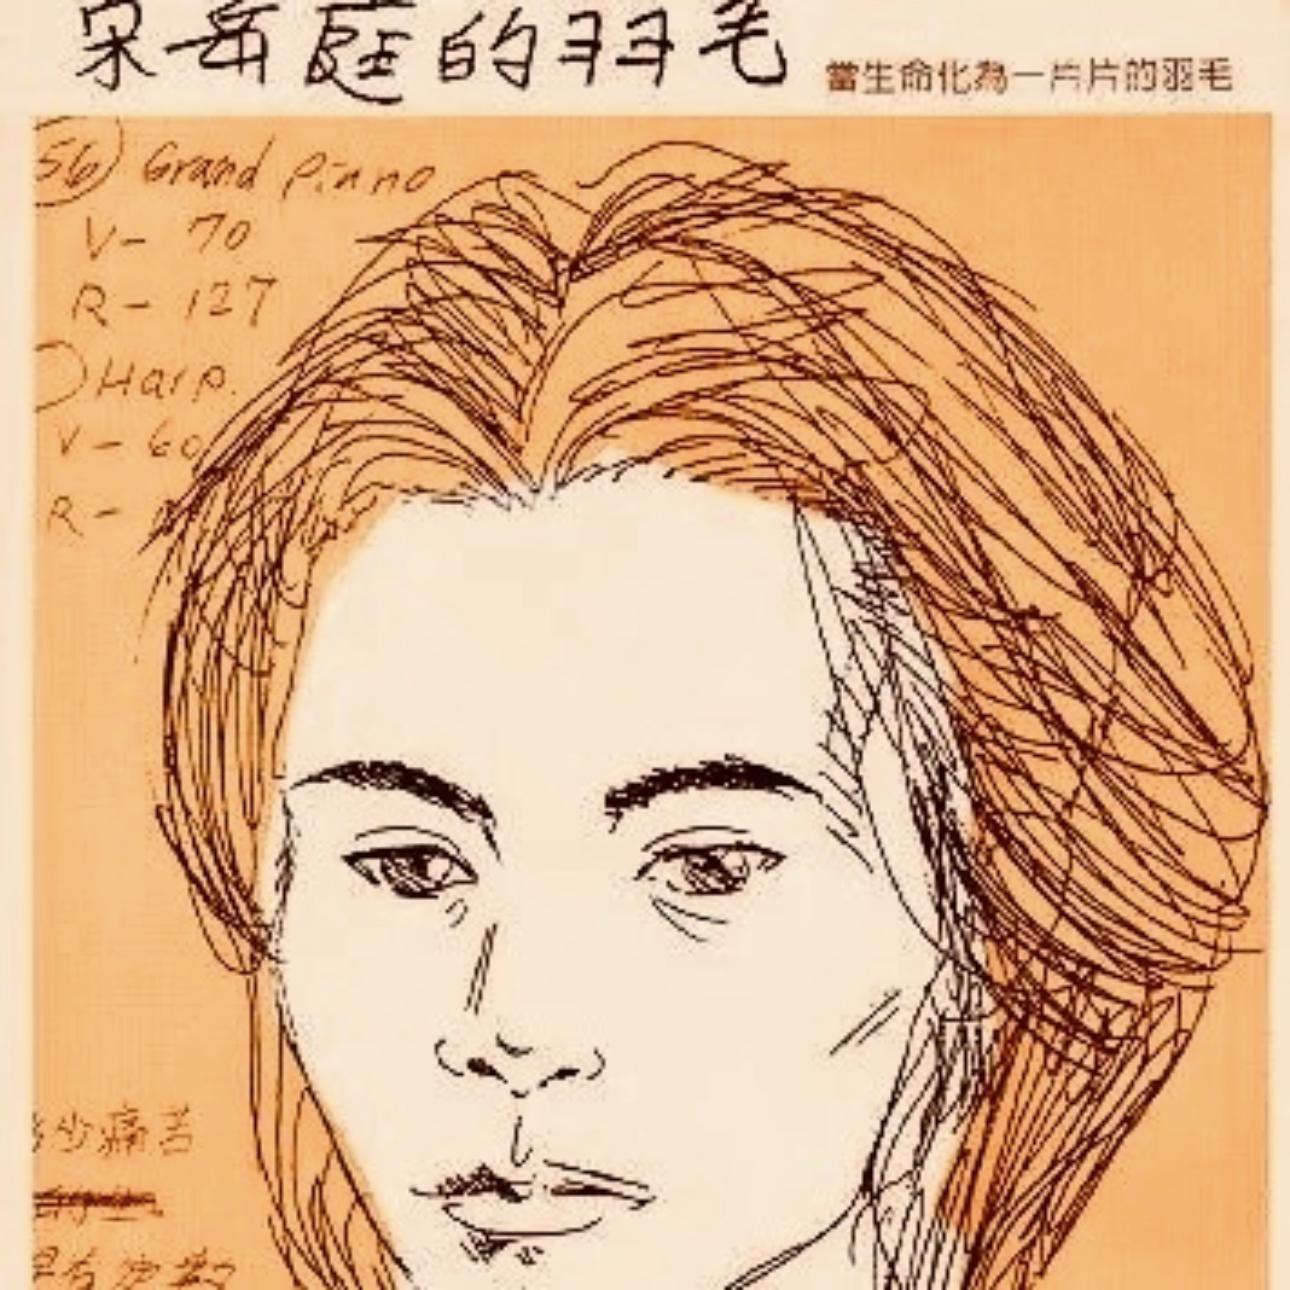 宋岳庭的羽毛
當生命化為一片片的羽毛
56) Grand Piano
V- 70
R- 127
) Harp.
V- 60
R-
少痛苦